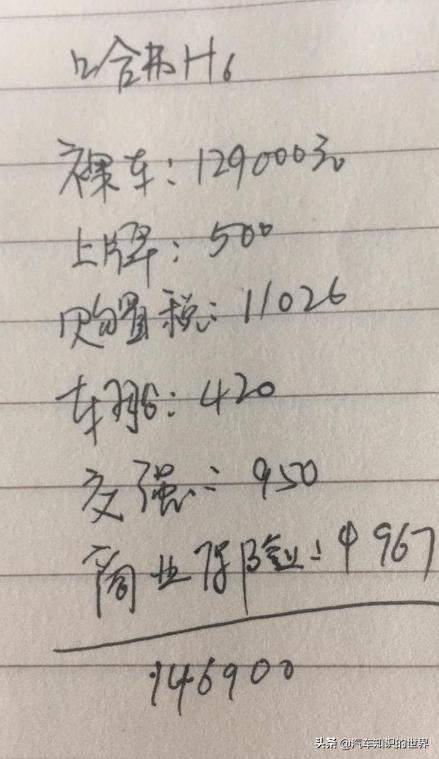 哈弗H6
裸车：129000元
上牌：500
购置税：11026
车船：420
交强：950
商业保险：4967
146900
头条 @汽车知识的世界